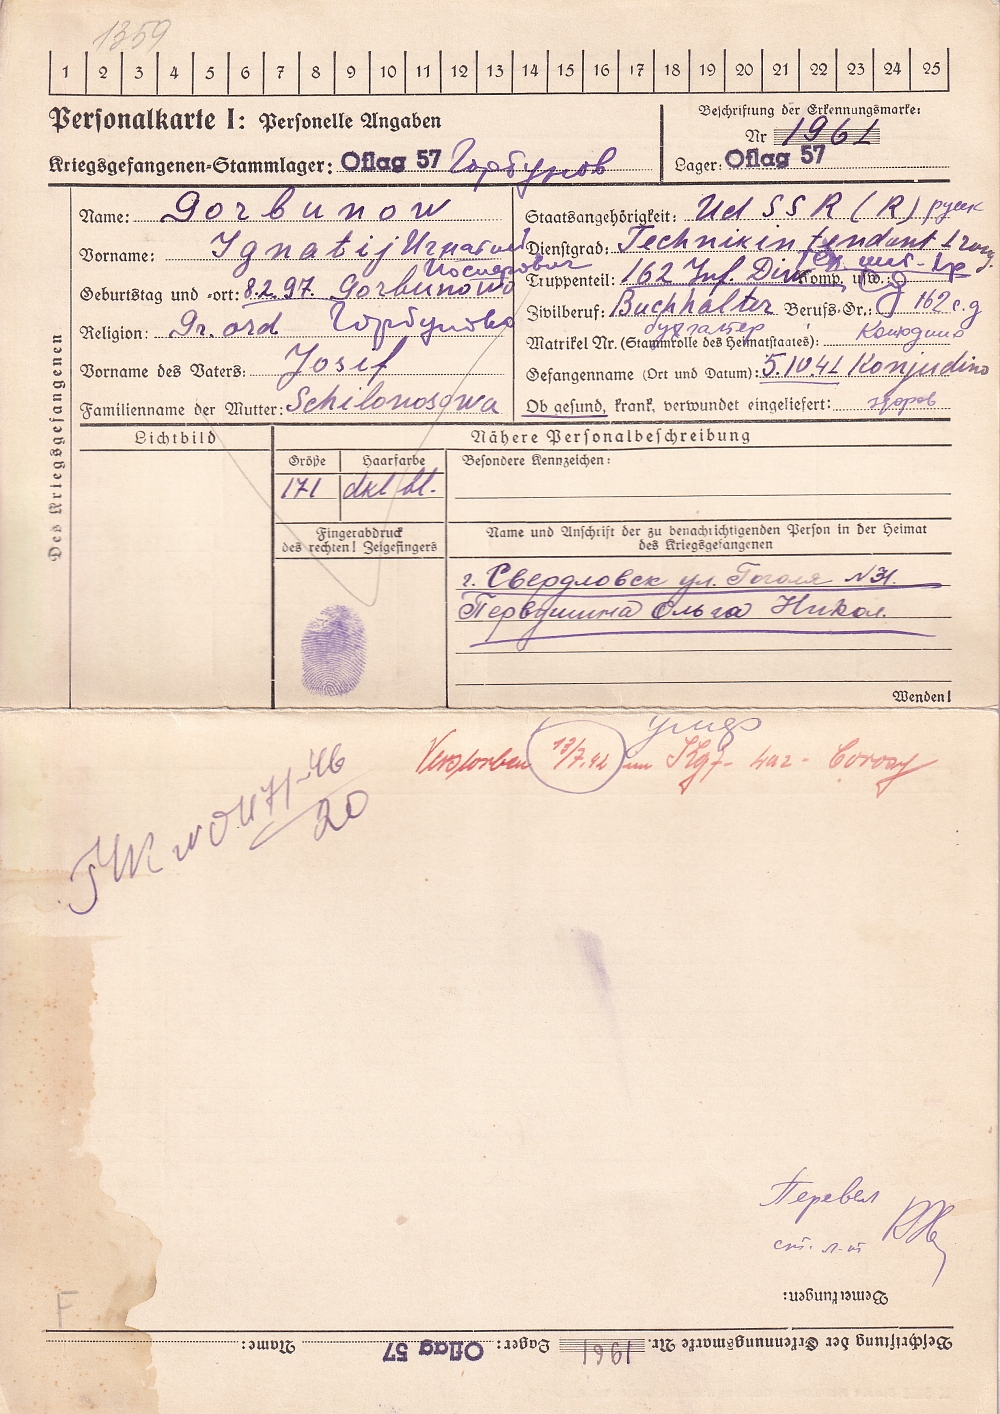 1359
1 2 3 4 5 6 7 8 9 10 11 12 13 14 15 16 17 18 19 20 21 22 23 24 25
Personalkarte I: Personelle Angaben
Kriegsgefangenen-Stammlager: Oflag 57 Горбунов
Beschriftung der Erkennungsmarke:
Nr 1961
Lager: Oflag 57
Des Kriegsgefangenen
Name: Gorbunow
Vorname: Ignatij Игнатий
Иосифович
Geburtstag und -ort: 8.2.97. Gorbunowo
Religion: Gr. ord Горбуново
Vorname des Vaters: Josif
Familienname der Mutter: Schilonosowa
Staatsangehörigkeit: Ud SSR (R) русск
Dienstgrad: Technikintendant 1 rang.
Truppenteil: 162 Inf. Div. Komp. usw.
Zivilberuf: Buchhalter Berufs-Gr.: 162 с.д
бухгалтер
Matrikel Nr. (Stammrolle des Heimatstaates):
Конюдино
Gefangenname (Ort und Datum): 5.10.41 Konjudino
Ob gesund, krank, verwundet eingeliefert: здоров
Lichtbild
Nähere Personalbeschreibung
Größe Haarfarbe
171 dkl bl.
Besondere Kennzeichen:
Fingerabdruck
des rechten! Zeigefingers
Name und Anschrift der zu benachrichtigenden Person in der Heimat
des Kriegsgefangenen
г. Свердловск ул. Гоголя №31.
Первушина Ольга Никол.
Wenden!
умер
Verstorben 13/7.42 im Kgf-Laz-
20
Перевел
ст. л-т
Bemerkungen:
Beschriftung der Erkennungsmarke Nr. 1961 Lager: Oflag 57 Name:
F